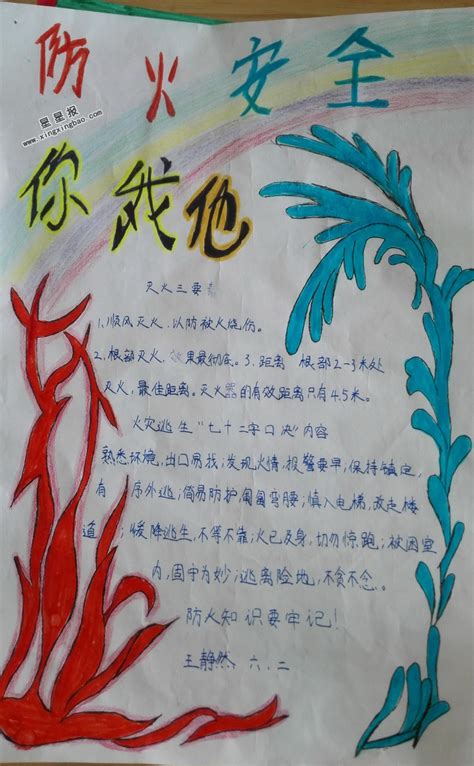 防火安全
星星报
www.xingxingbao.com
你我他
灭火三要
1、顺风灭火,以防被火烧伤。
2、根部灭火,效果最彻底。3、距离 根部2-3米处
灭火,最佳距离。灭火器的有效距离只有4.5米。
火灾逃生"七十二字口决"内容
熟悉环境,出口易找;发现火情,报警要早,保持镇定,
有 序外逃;简易防护 弯腰;慎入电梯,改走楼
道;缓降逃生,不等不靠;火已及身,切勿惊跑;被困室
内,固守为妙;逃离险地,不贪不念。
防火知识要牢记!
王静然 六.二